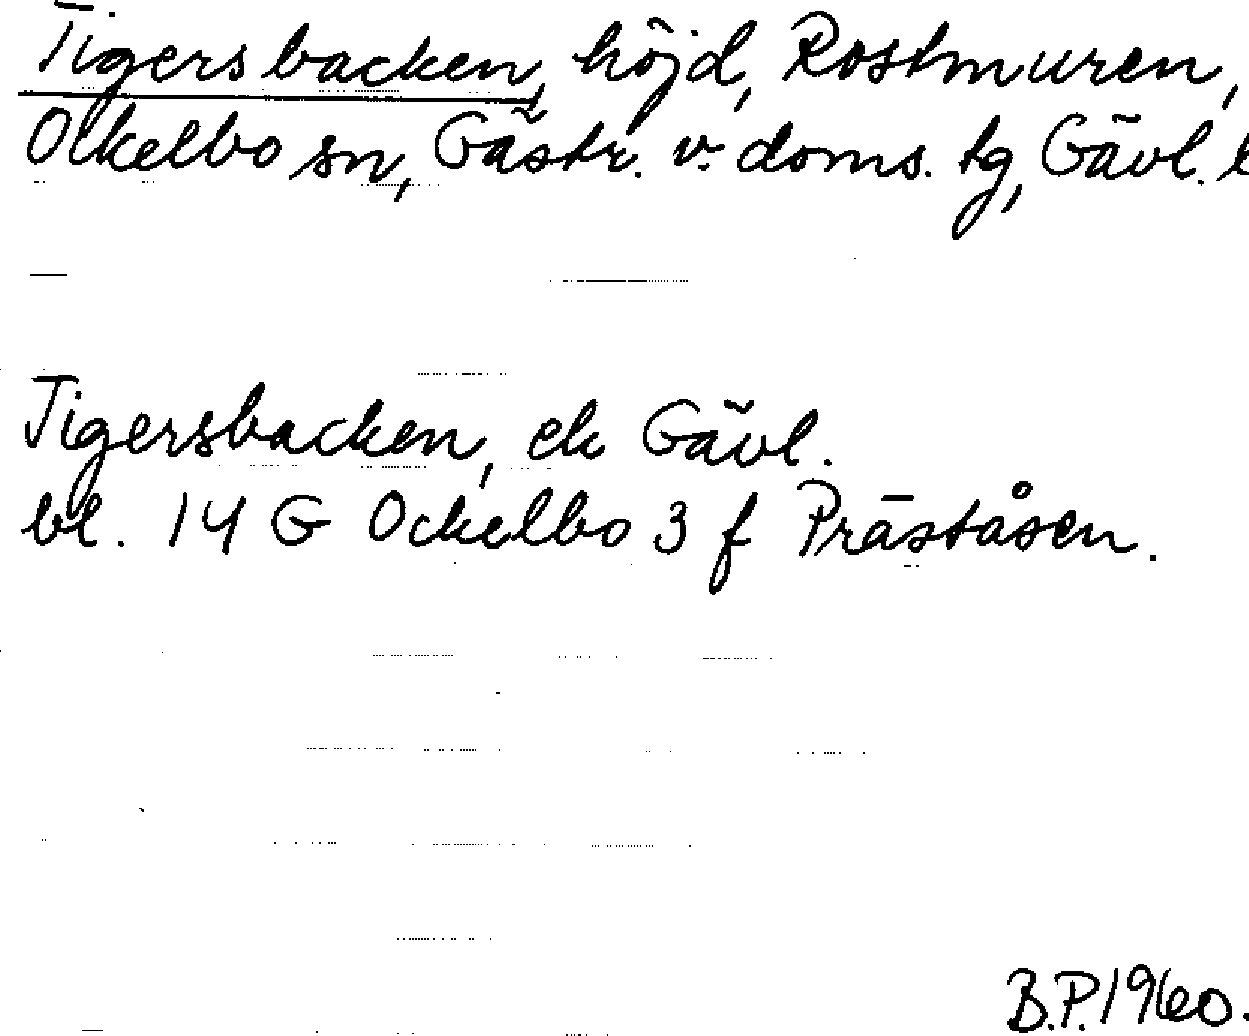 Tigersbacken, höjd, Rostmuren,
Ockelbo sn, Gästr. v. doms. tg, Gävl. l
Tigersbacken, ek Gävl.
bl. 14 G Ockelbo 3 f Präståsen.
B.P. 1960.